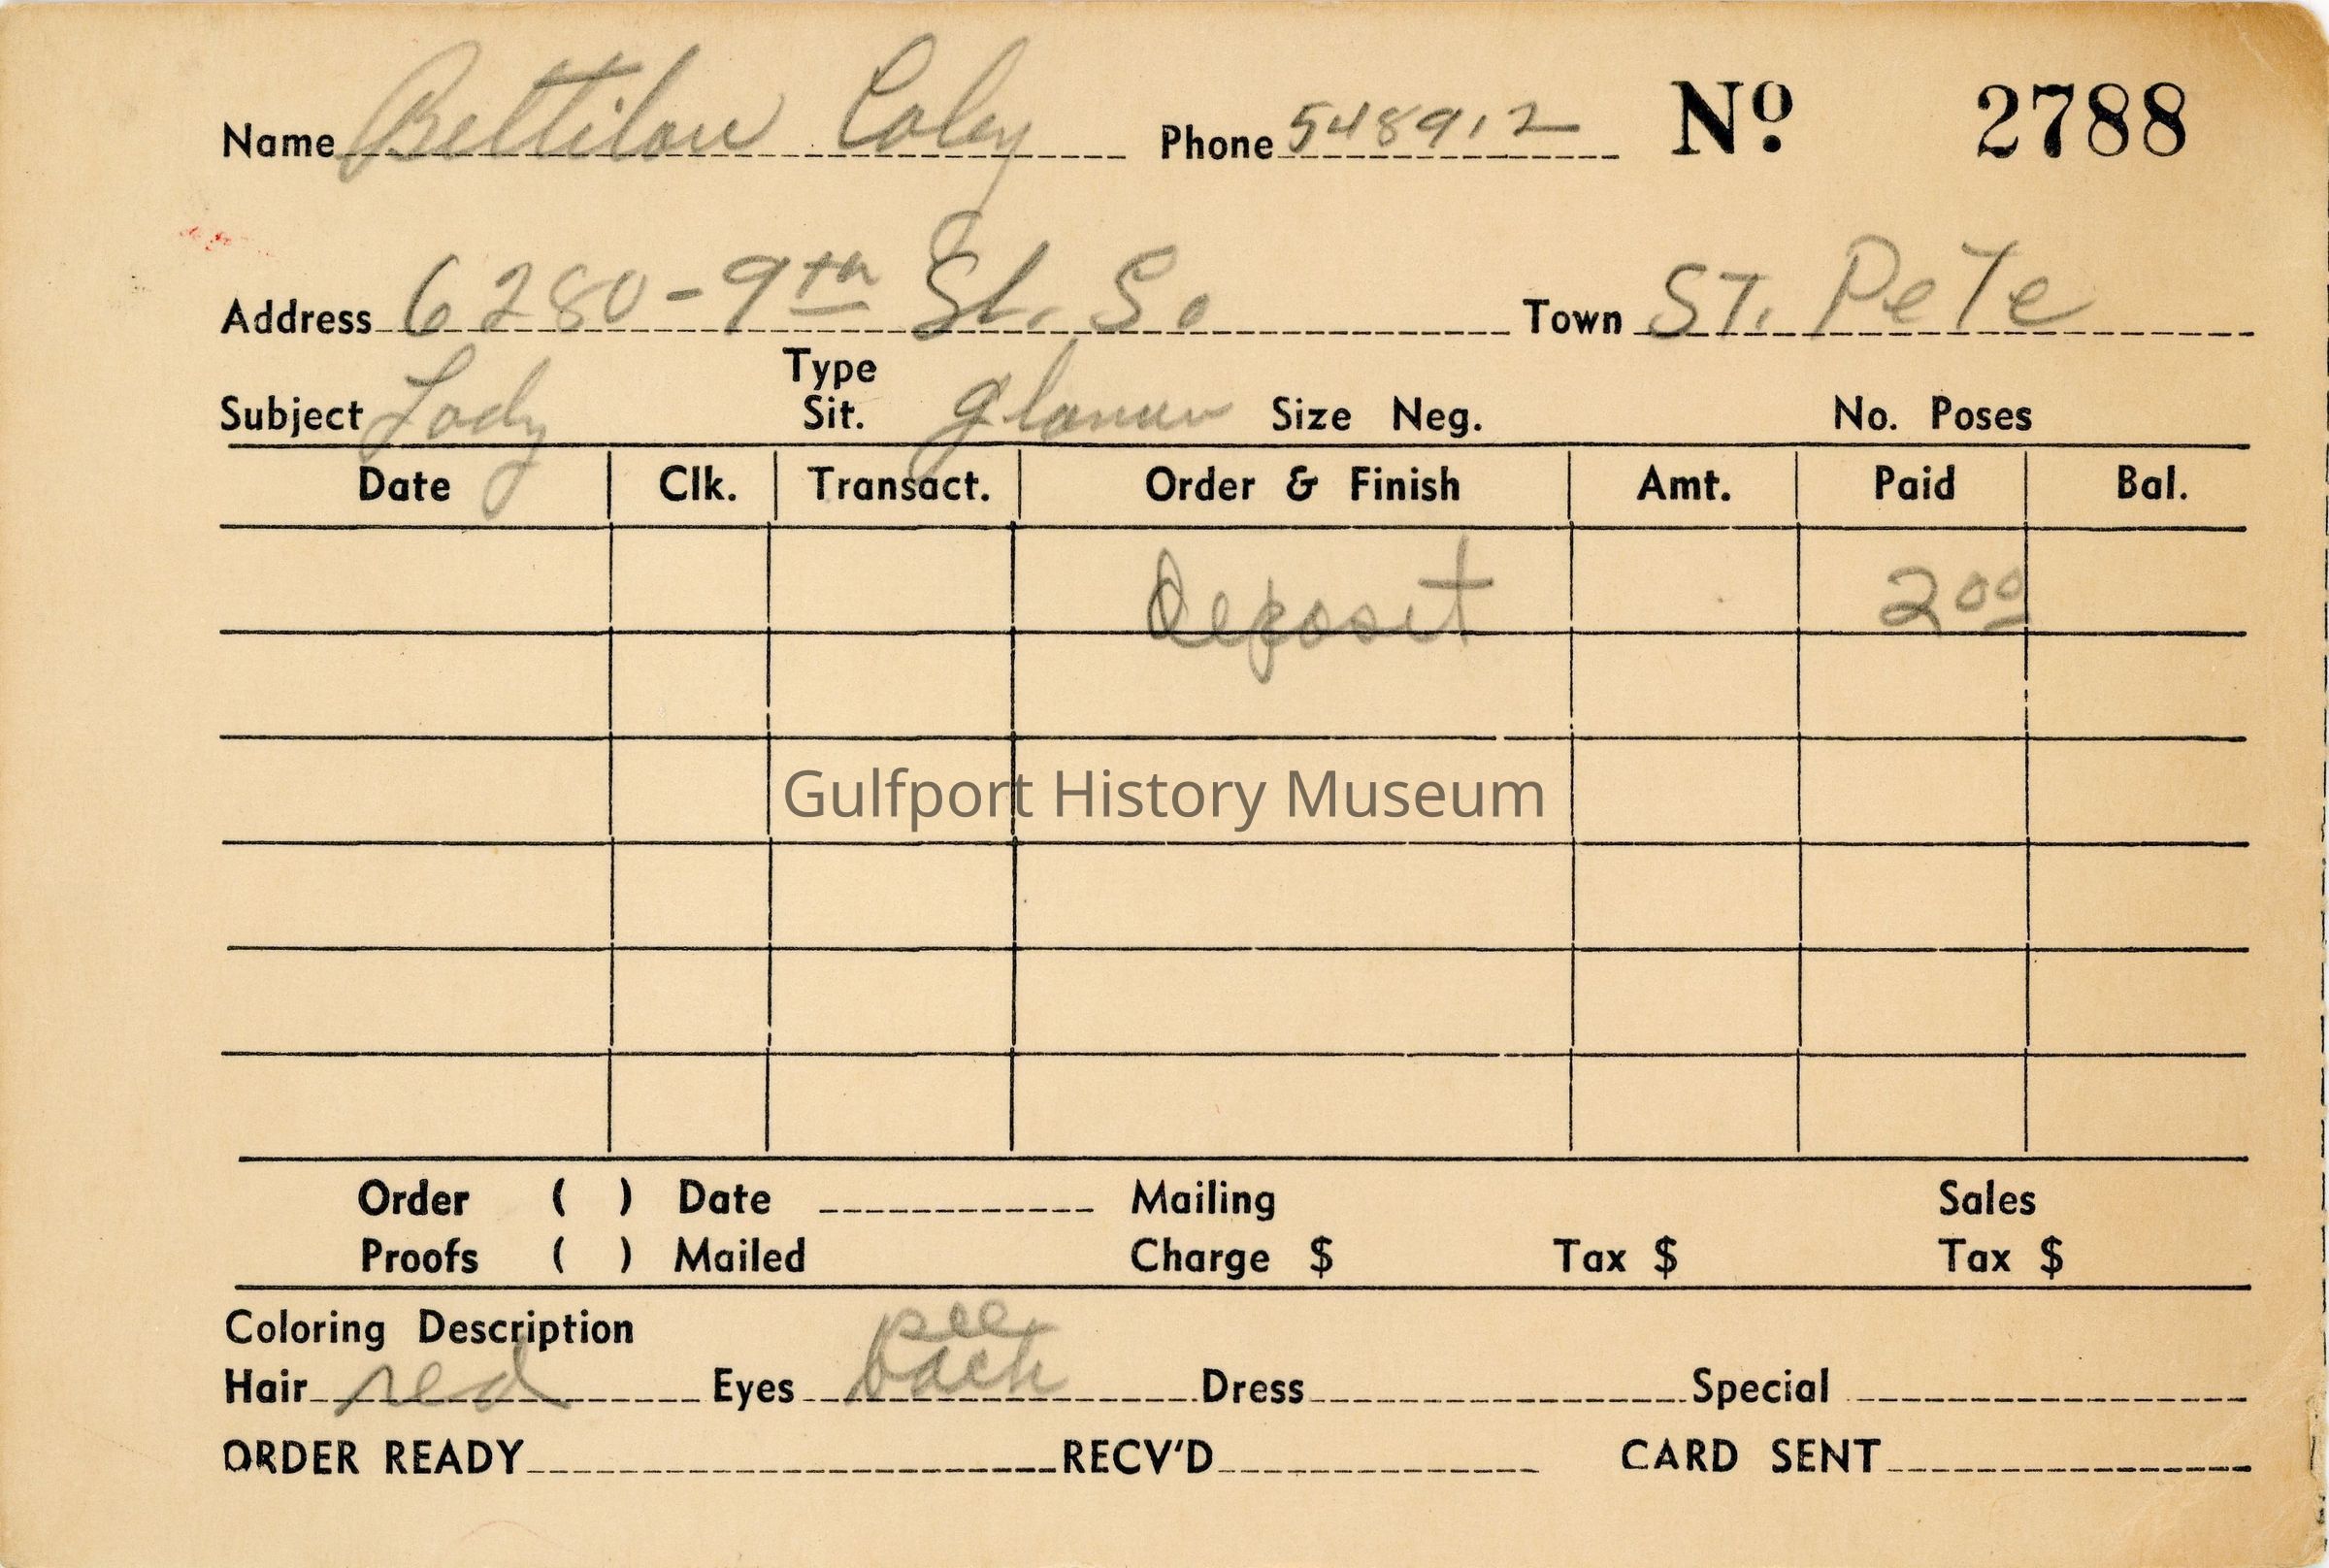 Name Bettilou Coley Phone 548912 Nº 2788
Address 6280-9th St. So Town ST. PeTe
Subject Lady Type Sit. glamur Size Neg. No. Poses
Date Clk. Transact. Order & Finish Amt. Paid Bal.
deposit 2 00
Gulfport History Museum
Order ( ) Date Mailing Sales
Proofs ( ) Mailed Charge $ Tax $ Tax $
Coloring Description
Hair red Eyes see back Dress Special
ORDER READY RECV'D CARD SENT